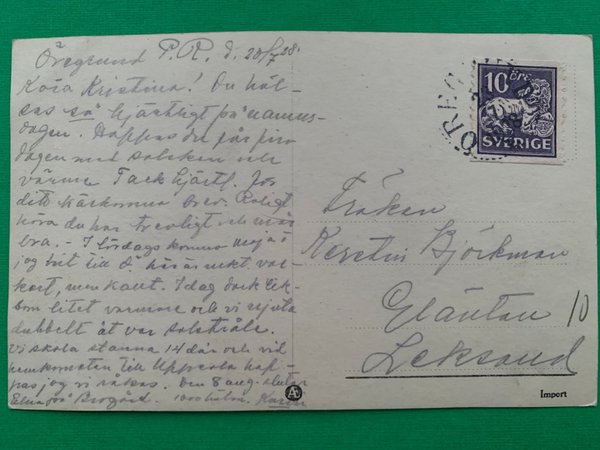 Öregrund P.R. d. 20/7 28.
Kära Kristina! Du häl-
sas så hjärtligt på namns-
dagen. Hoppas du får fira
dagen med solsken och
värme. Tack hjärtl. för
ditt välkomna brev. Roligt
höra du har trevligt och mår
bra. - I lördags kommo
jag hit till Ö här är mkt vac-
kert, men kallt. I dag dock
litet varmare och vi njuta
dubbelt åt var solstråle.
Vi skola stanna 14 dar och vid
hemkomsten till Uppsala hop-
pas jag vi råkas. Den 8 aug.
Karin
10 ÖRE
SVERIGE
ÖREGRUND
Fröken
Kerstin Björkman
Gläntan 10
Leksand
Import